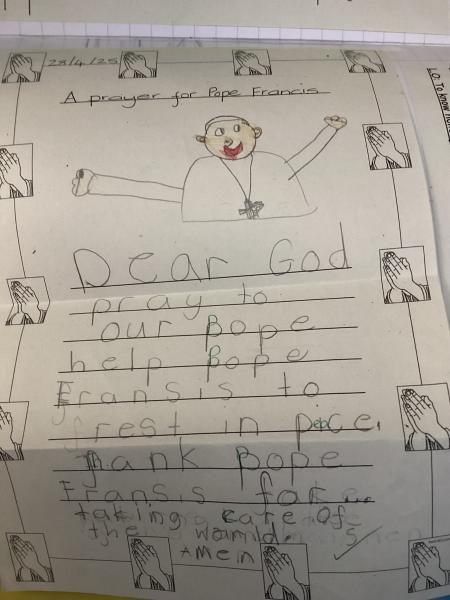 28/4/25
A prayer for Pope Francis
L.O. To know
Dear God
pray to
our Bope
help Bope
Fransis to
rest in peace.
Thank Pope
Fransis for
taking care of
the world.
Amein